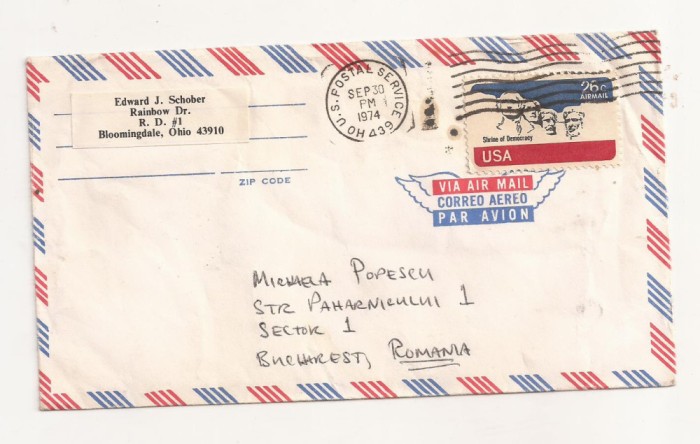 Edward J. Schober
Rainbow Dr.
R. D. #1
Bloomingdale, Ohio 43910
ZIP CODE
U.S. POSTAL SERVICE
OH 439
SEP 30
PM
1974
26c
AIRMAIL
Shrine of Democracy
USA
VIA AIR MAIL
CORREO AEREO
PAR AVION
MICHAELA POPESCU
STR PAHARNICULUI 1
SECTOR 1
BUCHAREST, ROMANIA